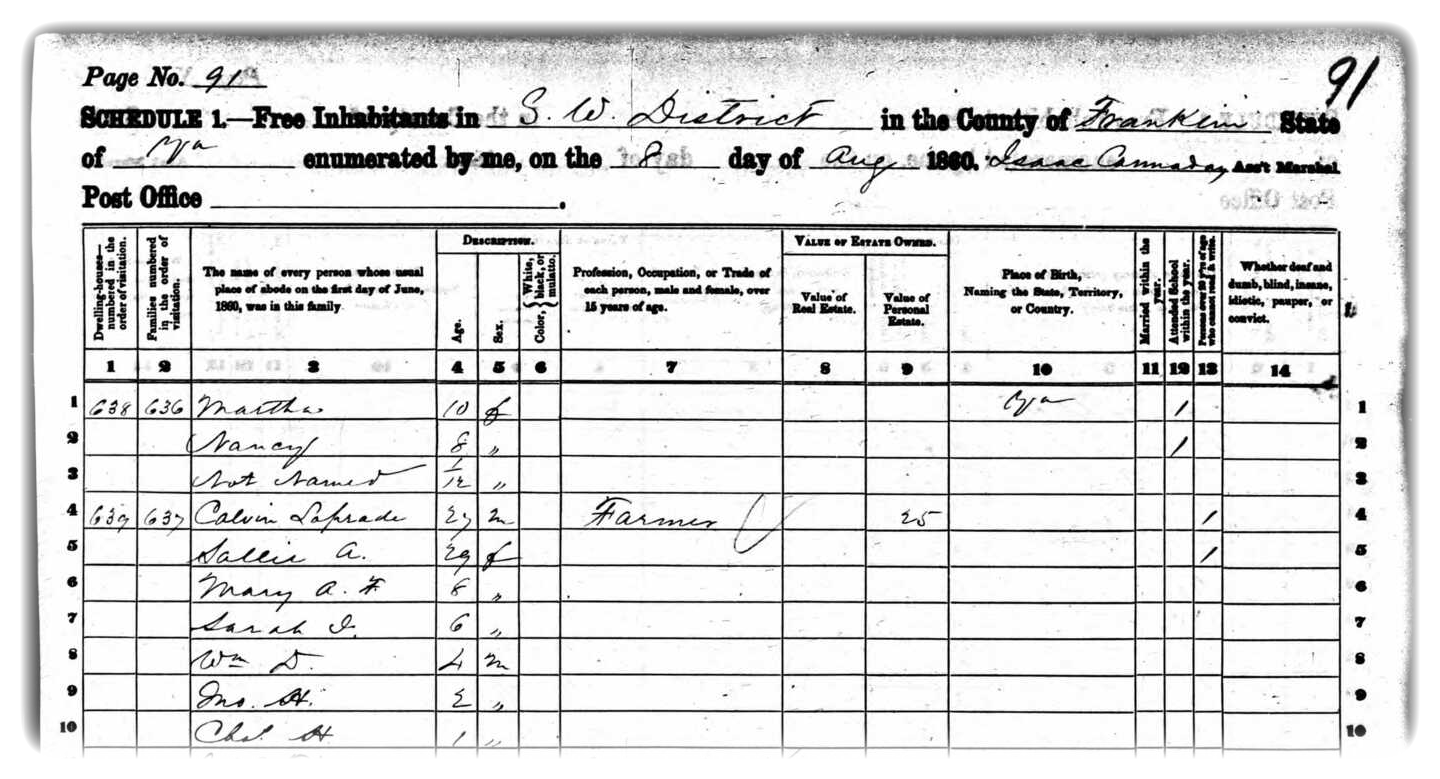 Page No. 91
91
SCHEDULE 1.—Free Inhabitants in S. W. District in the County of Franklin State
of Va enumerated by me, on the 8 day of Aug 1860. Isaac Cannaday Ass't Marshal
Post Office .
DESCRIPTION. VALUE OF ESTATE OWNED.
Dwelling-houses—numbered in the order of visitation.
Families numbered in the order of visitation.
The name of every person whose usual
place of abode on the first day of June,
1860, was in this family.
Age.
Sex.
Color, { White, black, or mulatto.
Profession, Occupation, or Trade of
each person, male and female, over
15 years of age.
Value of
Real Estate.
Value of
Personal
Estate.
Place of Birth,
Naming the State, Territory,
or Country.
Married within the year.
Attended School within the year.
Persons over 20 y'rs of age who cannot read & write.
Whether deaf and
dumb, blind, insane,
idiotic, pauper, or
convict.
1 2 3 4 5 6 7 8 9 10 11 12 13 14
1 638 636 Martha 10 f Va 1 1
2 Nancy 8 " 1 2
3 Not Named 1/12 " 3
4 639 637 Calvin Laprade 27 m Farmer 25 1 4
5 Sallie A. 29 f 1 5
6 Mary A. F. 8 " 6
7 Sarah J. 6 " 7
8 Wm D. 4 m 8
9 Jno. H. 2 " 9
10 Chas. H 1 " 10